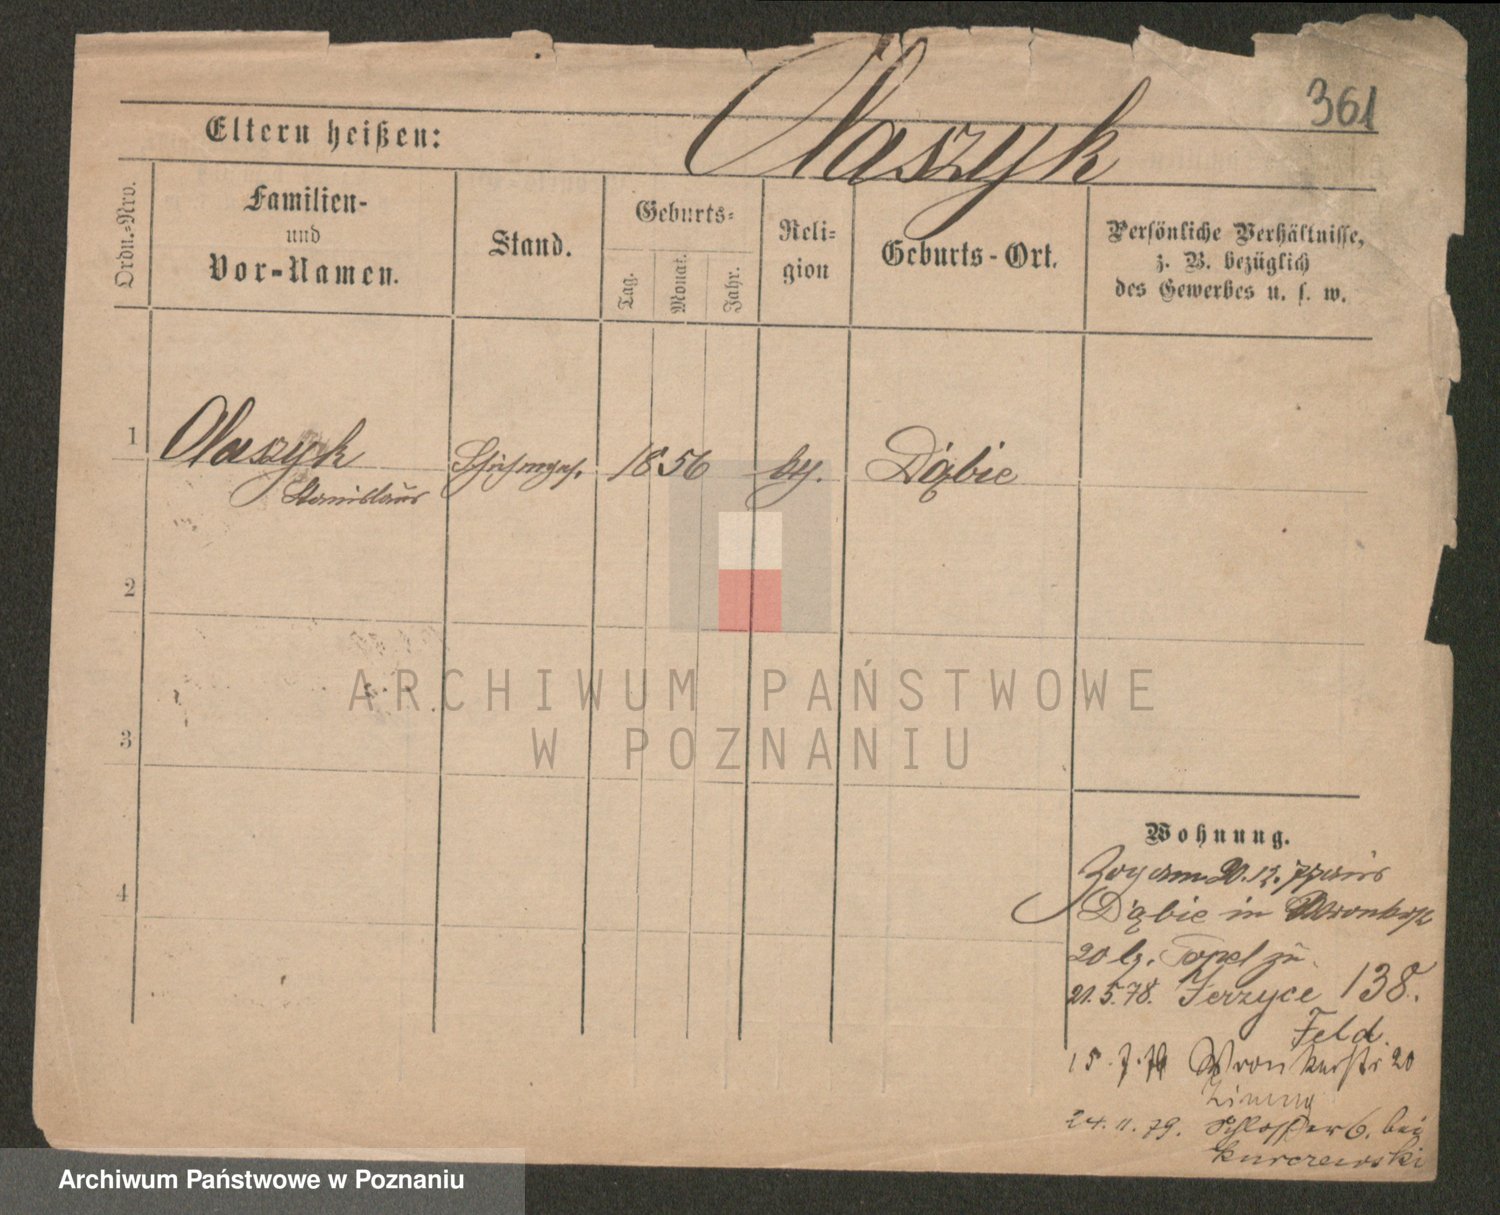 361
Olaszyk
Eltern heißen:
Ordn.-Nro.
Familien-
und
Vor-Namen.
Stand.
Geburts-
Tag.
Monat.
Jahr.
Reli-
gion
Geburts-Ort.
Persönliche Verhältnisse,
z. B. bezüglich
des Gewerbes u. s. w.
1
Olaszyk
Stanislaus
1856
Dąbie
2
3
4
ARCHIWUM PAŃSTWOWE
W POZNANIU
Wohnung.
Zog am 20.12.
Dąbie in Wronkerstr
20 b.
21.5.78. Jerzyce 138.
Feld.
15.7. Wronkerstr 20
24.11.79. Schlosser 6. bei
Kurczewski
Archiwum Państwowe w Poznaniu